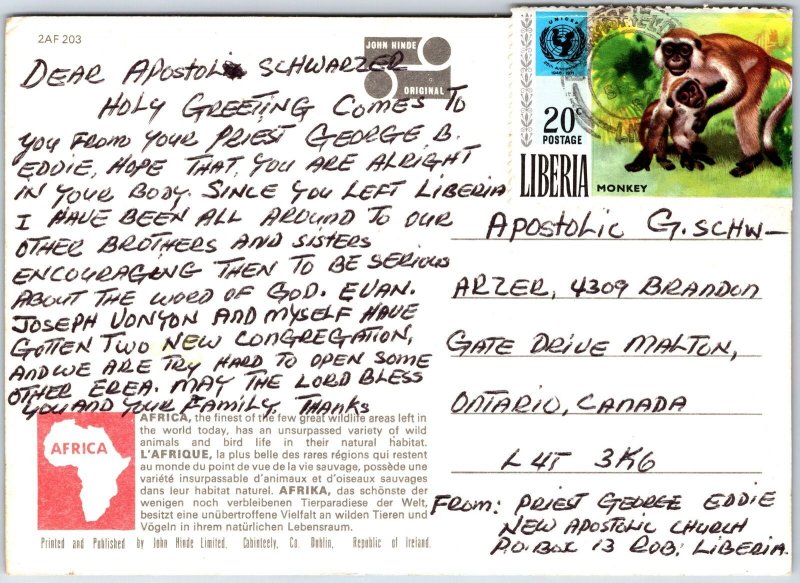 2AF 203
JOHN HINDE
ORIGINAL
DEAR APOSTOLIC SCHWARZER
HOLY GREETING COMES TO
YOU FROM YOUR PRIEST GEORGE B.
EDDIE, HOPE THAT YOU ARE ALRIGHT
IN YOUR BODY. SINCE YOU LEFT LIBERIA
I HAVE BEEN ALL AROUND TO OUR
OTHER BROTHERS AND SISTERS
ENCOURAGING THEN TO BE SERIOUS
ABOUT THE WORD OF GOD. EVAN.
JOSEPH VONYON AND MYSELF HAVE
GOTTEN TWO NEW CONGREGATION,
AND WE ARE TRY HARD TO OPEN SOME
OTHER EREA. MAY THE LORD BLESS
YOU AND YOUR FAMILY. THANKS
AFRICA
AFRICA, the finest of the few great wildlife areas left in
the world today, has an unsurpassed variety of wild
animals and bird life in their natural habitat.
L'AFRIQUE, la plus belle des rares régions qui restent
au monde du point de vue de la vie sauvage, possède une
variété insurpassable d'animaux et d'oiseaux sauvages
dans leur habitat naturel. AFRIKA, das schönste der
wenigen noch verbleibenen Tierparadiese der Welt,
besitzt eine unübertroffene Vielfalt an wilden Tieren und
Vögeln in ihrem natürlichen Lebensraum.
Printed and Published by John Hinde Limited, Cabinteely, Co. Dublin, Republic of Ireland.
UNICEF
1946-1971
20c
POSTAGE
LIBERIA
MONKEY
APOSTOLIC G. SCHW-
ARZER, 4309 BRANDON
GATE DRIVE MALTON,
ONTARIO, CANADA
L4T 3K6
FROM: PRIEST GEORGE EDDIE
NEW APOSTOLIC CHURCH
P.O. BOX 13 ROB: LIBERIA.